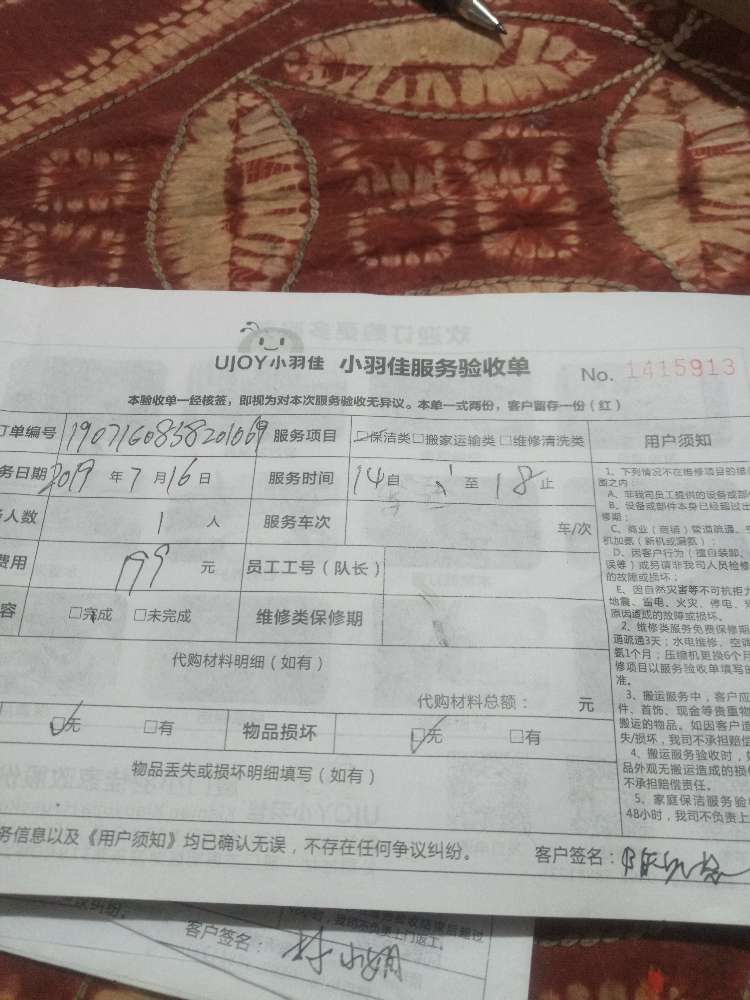 UJOY小羽佳 小羽佳服务验收单 No. 1415913
本验收单一经核签，即视为对本次服务验收无异议。本单一式两份，客户留存一份（红）
订单编号 服务项目 □保洁类□搬家运输类□维修清洗类 用户须知
务日期 2019 年 7 月 16 日 服务时间 14 自 至 18 止
人数 1 人 服务车次 车/次
费用 元 员工工号（队长）
容 □完成 □未完成 维修类保修期
代购材料明细（如有）
代购材料总额： 元
□无 □有 物品损坏 □无 □有
物品丢失或损坏明细填写（如有）
务信息以及《用户须知》均已确认无误，不存在任何争议纠纷。 客户签名：
1、下列情况不在维修项目的
围之内：
A、非我司员工提供的设备或部
B、设备或部件本身已经超过
修期；
C、商业（商铺）管道疏通、
机加氨（新机或漏氨）；
D、因客户行为（擅自装卸、
误等）或另请非我司人员检修
的故障或损坏；
E、因自然灾害等不可抗拒力
地震、雷电、火灾、停电、
原因造成的故障或损坏。
2、维修类服务免费保修期
道疏通3天；水电维修、空调
氨1个月；压缩机更换6个月
修项目以服务验收单填写的
准。
3、搬运服务中，客户应
件、首饰、现金等贵重物
搬运的物品。如因客户遗
失/损坏，我司不承担赔偿
4、搬运服务验收时，
品外观无搬运造成的损
不承担赔偿责任。
5、家庭保洁服务验
48小时，我司不负责上
议纠纷。
客户签名： 林小娟